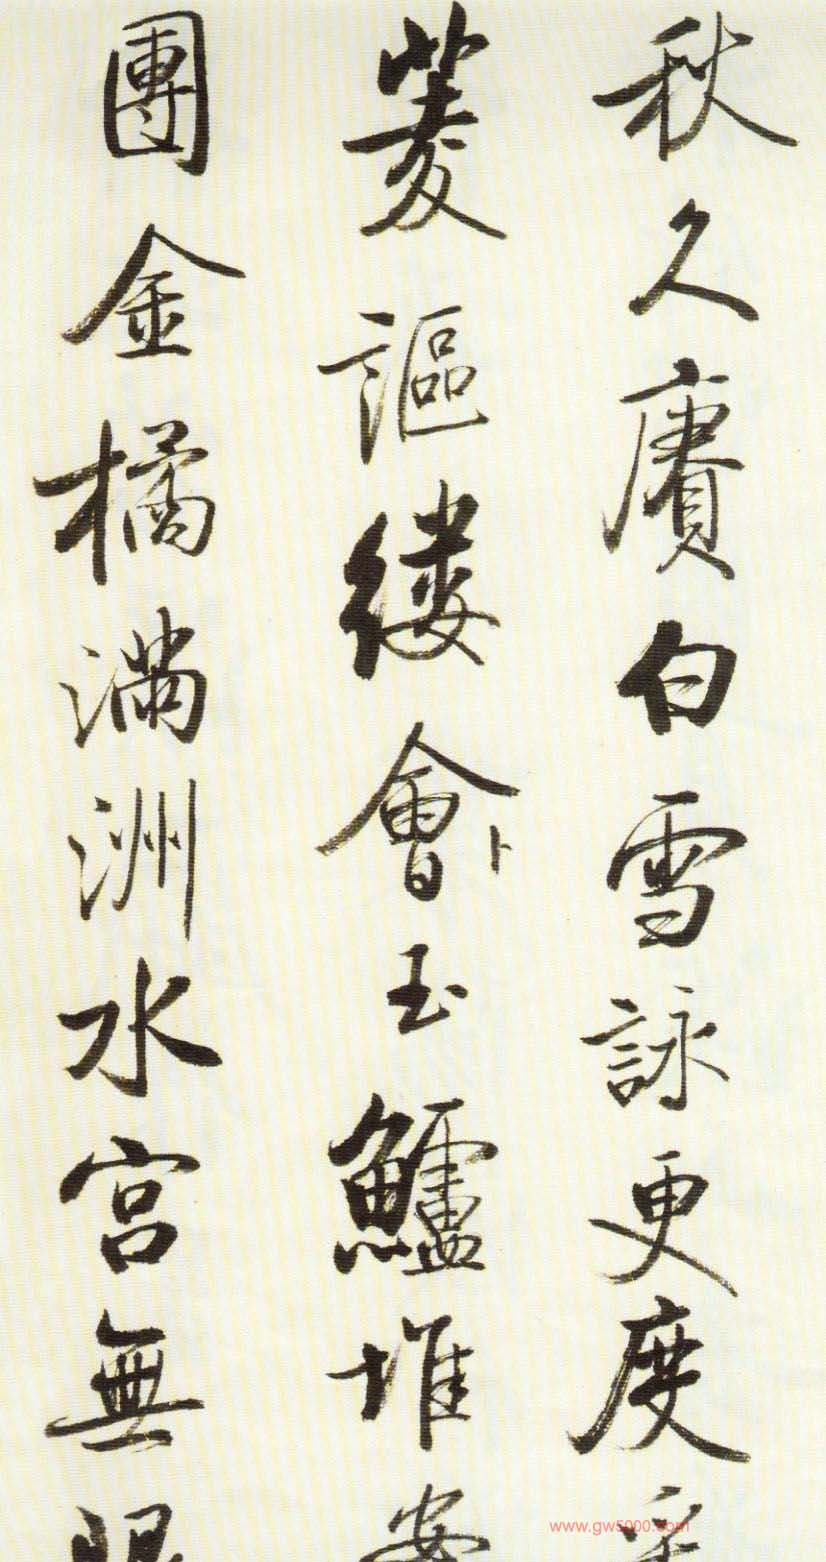 秋久賡白雪詠更度
菱謳縷會卜玉鱸堆
團金橘滿洲水宮無
www.gw5000.com